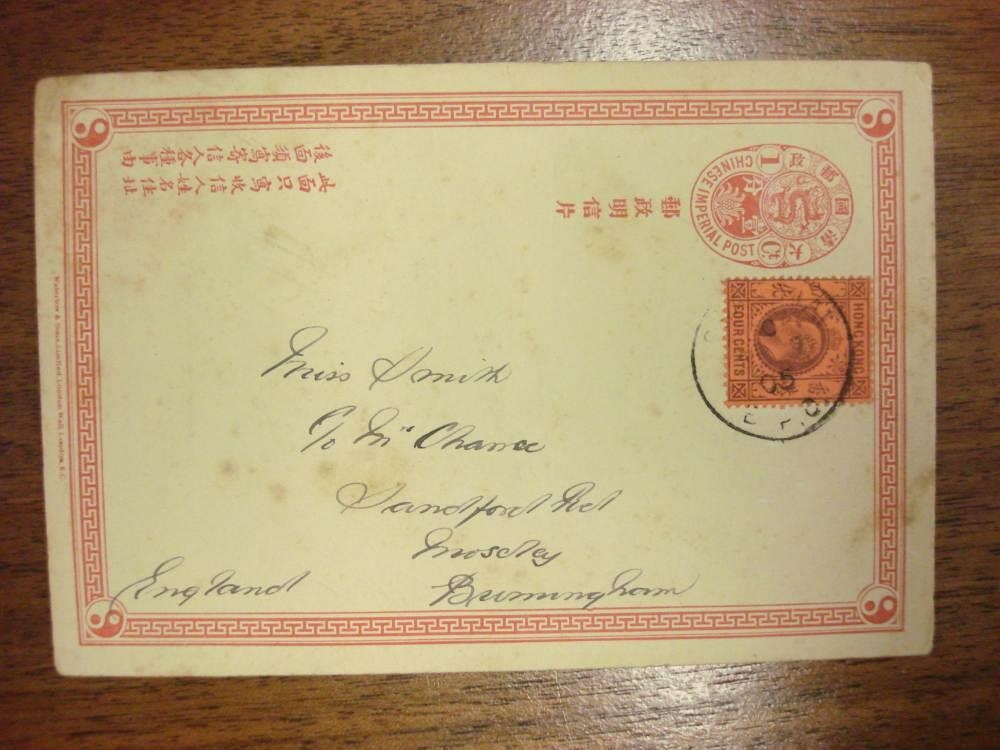 大清國郵政
1 Ct
CHINESE IMPERIAL POST
壹分
郵政明信片
此面只寫收信人姓名住址
後面須寫寄信人各種事由
HONG KONG
FOUR CENTS
Miss Smith
C/o Mrs Chance
Sandford Rd
Moseley
Birmingham
England
Waterlow & Sons Limited, London Wall, London, E.C.